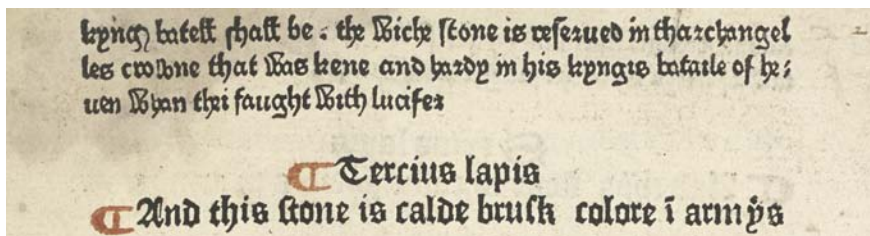 kynges batell shall be. the wiche stone is reserued in tharchangel
les crowne that was kene and hardy in his kyngis bataile of he:
uen whan thei faught with lucifer
¶ Tercius lapis
¶ And this stone is calde brusk colore ī armys